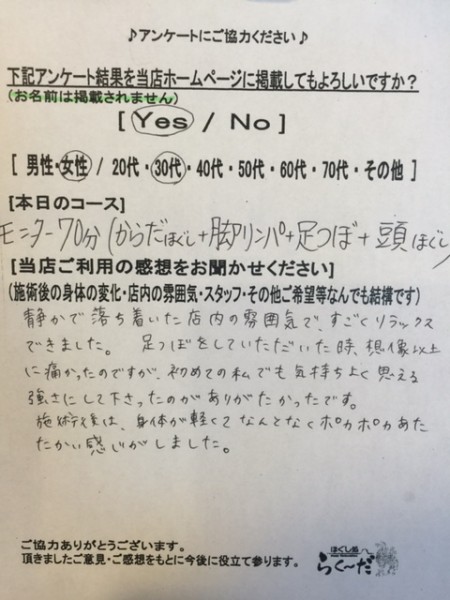 ♪アンケートにご協力ください♪
下記アンケート結果を当店ホームページに掲載してもよろしいですか？
(お名前は掲載されません)
[ Yes / No ]
[ 男性・女性 / 20代・30代・40代・50代・60代・70代・その他 ]
[本日のコース]
モニター70分(からだほぐし+脚リンパ+足つぼ+頭ほぐし)
[当店ご利用の感想をお聞かせください]
(施術後の身体の変化・店内の雰囲気・スタッフ・その他ご希望等なんでも結構です)
静かで落ち着いた店内の雰囲気で、すごくリラックス
できました。 足つぼをしていただいた時、想像以上
に痛かったのですが、初めての私でも気持ちよく思える
強さにして下さったのがありがたかったです。
施術後は、身体が軽くてなんとなくポカポカあた
たかい感じがしました。
ご協力ありがとうございます。
頂きましたご意見・ご感想をもとに今後に役立て参ります。
ほぐし処
らく〜だ